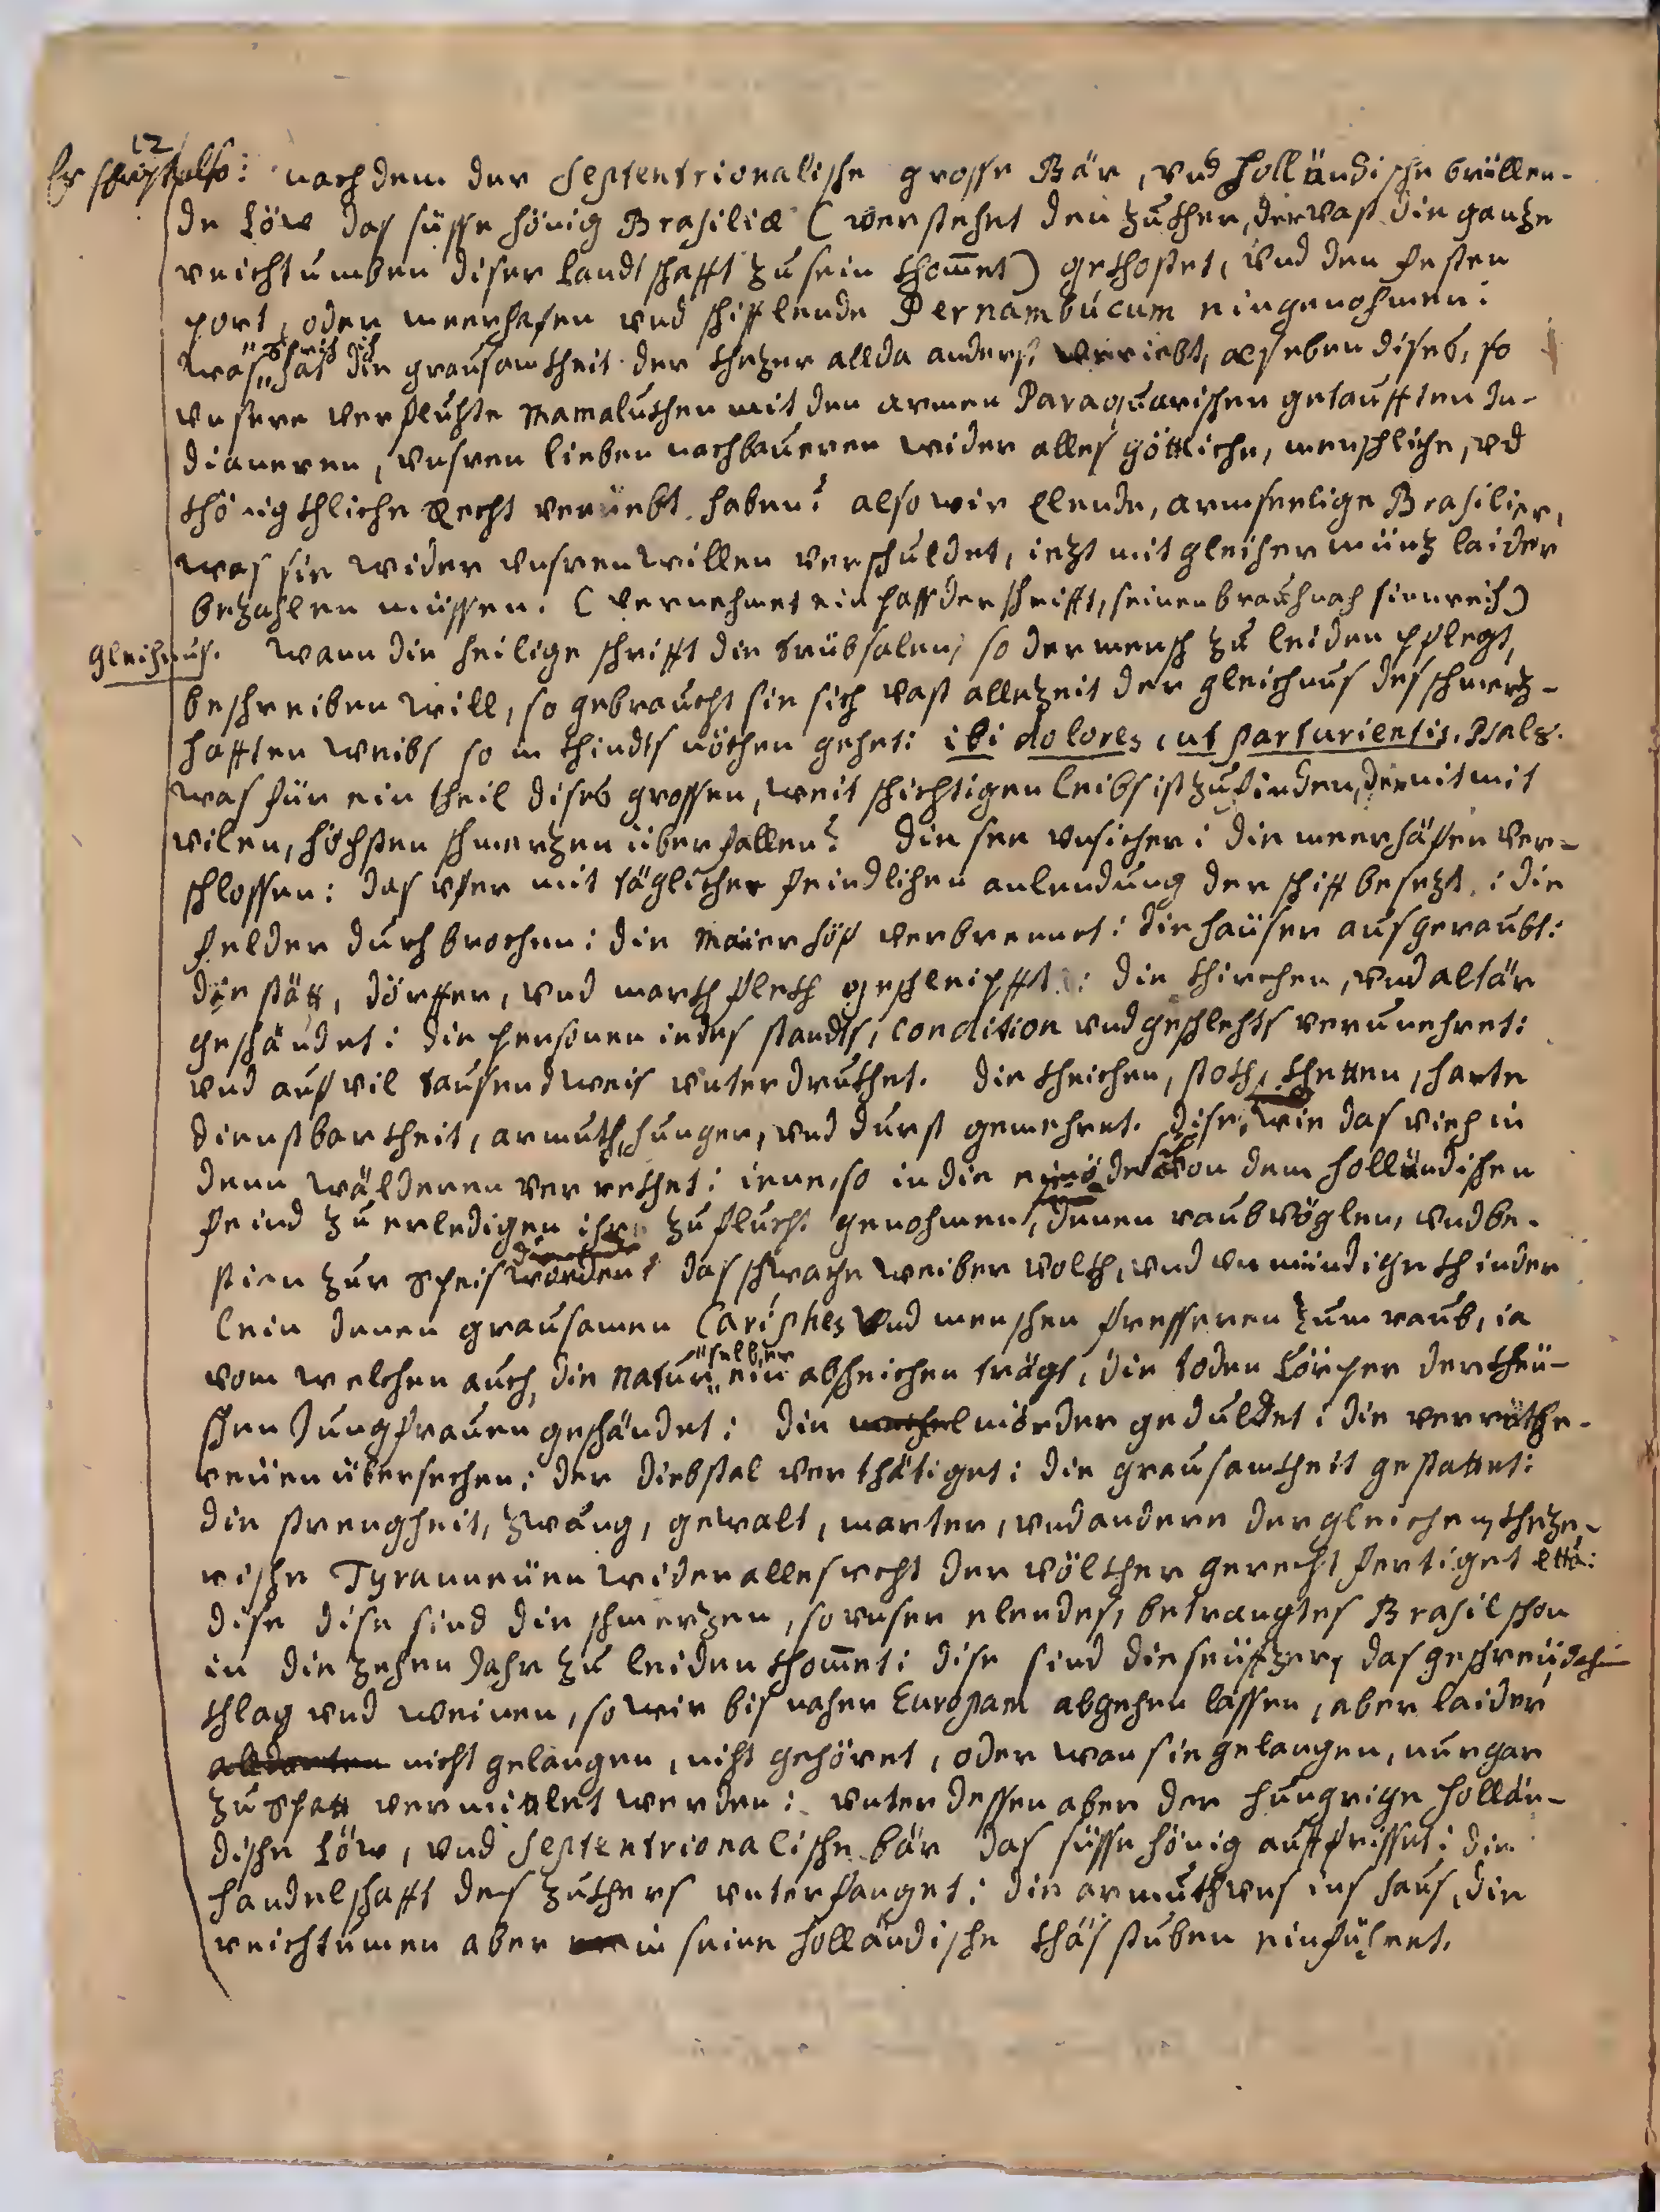 12
Er schreibt also: nach dem der Septentrionalische grosse Bär, vnd Holländische brüllen-
de Löw das süsse hönig Brasiliæ (verstehet den zukher, der vast die ganze
reichtumben diser landtschafft zu sein khom̄et) gekhostet, vnd den festen
port, oder meerhafen vnd schifflende Pernambúcum eingenohmen:
was "sprich ich" hat die grausamkheit der khezer allda anderst verüebt, als eben dises, so
vnsere verfluchte Mamalukhen mit den armen Paraquarischen getaufften In-
dianeren, vnsren lieben nachbaueren wider alles göttliche, menschliche, vd
khönigkhliche Recht verüebt haben? also wir Elende, armseelige Brasilier,
was sie wider vnsren willen verschuldet, iezt mit gleicher münz laider
bezahlen müssen. (vernehmet ein pass der schrifft, seinen brauch nach sinnreich)
Gleichnus. Wann die heilige schrifft die trübsalen, so der mensch zu leiden pflegt,
beschreiben will, so gebraucht sie sich vast allezeit der gleichnus des schmerz-
hafften weibs so in khindts nöthen gehet: ibi dolores, ut parturientis. Psal
was für ein theil dises grossen, weit schichtigen leibs ist zu finden, der nit mit
vilen, höchsten schmerzen überfallen? Die see vnsicher: die meerhäfen ver-
schlossen: das vfer mit täglicher feindlichen anlendung der schiff besezt: die
felder durchbrochen: die Maierhöff verbrennet: die haüser ausgeraubt:
die stätt, dörffer, vnd markhflekh geschleipfft: die khirchen, vnd altär
geschändet: die personen iedes standts, condition vnd geschlechts verunehret:
vnd auf vil tausendweis vnterdrukhet. die kheichen, stokh, khetten, harte
dienstbarkheit, armuth, hunger, vnd durst gemehret. dise, wie das vieh in
denn wälderen verrekhet: iene, so in die einöde sich von dem holländischen
feind zu erledigen ihre zuflucht genohmen, denen raubvöglen, vnd be-
stien zur speis worden: das schwache weiber volkh, vnd vnmündige khinder
lein denen grausamen Cariphes vnd menschen fresseren zum raub, ia
vom welchen auch die Natur "selber" ein abscheichen trägt, die toden Cörper der kheü-
schen Jungfrauen geschändet: die mörder geduldet: die verräthe-
reüen übersechen: der diebstal verthätiget: die grausamkheit gestattet:
die strengheit, zwang, gewalt, marter, vnd andere dergleichen kheze-
rische Tyranneüen wider alles recht der völkher gerechtfertiget etta:
dise dise sind die schmerzen, so vnser elendes, betrangtes Brasil schon
in die zehen Jahr zu leiden khom̄et: dise sind die seüfzer, das geschreü, das
khlag vnd weinen, so wir bis naher Europam abgehen lassen, aber laider
alldorten nicht gelangen, nicht gehöret, oder wan sie gelangen, nur gar
zu spatt vermittlet werden: vnterdessen aber der hungrige hollän-
dische Löw, vnd Septentrionalische bär das süsse hönig auffrisset: die
handelschafft des zukhers vnterfanget: die armuth vns ins haus, die
reichtumen aber in seine holländische khäs stuben einführet.